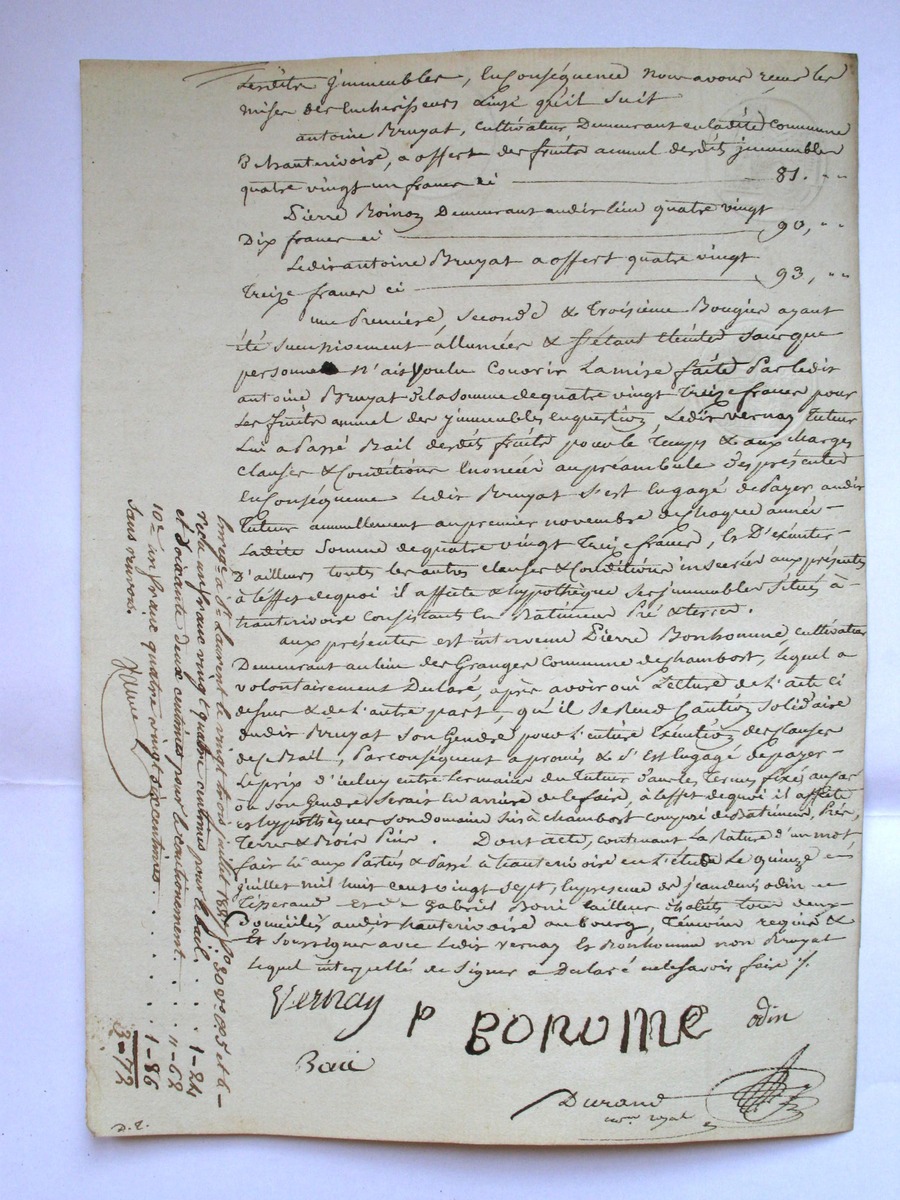 Lesdits jmmeubles, En Conséquence Nous avons reçu les
mises des Encherisseurs Ainsi qu'il suit
antoine Bruyat, Cultivateur Demeurant en ladite Commune
D'hauterivoire, a offert des fruits annuel desdits jmmeubles
quatre vingt un francs ci 81. "
Pierre Demeurant audit lieu quatre vingt
Dix francs ci 90, "
Ledit antoine Bruyat a offert quatre vingt
Treize francs ci 93, "
une Premiere, seconde & Troisième Bougies ayant
été successivement allumées & s'étant Eteintes sans que
personne n'ait voulu Couvrir La mise faite Par ledit
antoine Bruyat de la somme de quatre vingt Treize francs pour
Les fruits annuel des jmmeubles en question, Ledit Vernay Tuteur
Lui a Passé Bail desdits fruits pour le Temps & aux charges
clauses & Conditions Enoncées au préambule des présentes
En Conséquence Ledit Bruyat s'est Engagé de Payer audit
Tuteur annuellement au premier novembre de chaque année
Ladite Somme de quatre vingt Treize francs, Et D'éxécuter
D'ailleurs toutes les autres clauses & Conditions inserées aux présentes
à l'effet de quoi il affecte & hypothèque ses jmmeubles situés à
hauterivoire Consistants En Batiment Pré & terres.
aux présentes est intervenu Pierre Bonhomme, cultivateur
Demeurant au lieu des Granges Commune de chambost, Lequel a
volontairement Declaré, après avoir oui Lecture de L'acte ci
dessus & de L'autre part, qu'il se Rend Caution solidaire
dudit Bruyat son Gendre pour L'entière Exécution des clauses
de ce Bail, Par conséquent a promis & s'Est Engagé de payer
Le prix d'icelui entre les mains du Tuteur dans les Termes fixés au cas
ou son Gendre serait En arrière de le faire, à l'effet de quoi il affecte
et hypothèque son domaine sis à chambost composé de Batiment, Prés,
Terres & Bois Pins. Dont acte, contenant La Rature d'un mot
fait Lu aux Parties & Passé à hauterivoire en L'étude Le quinze
juillet mil huit cent vingt sept, En presence de jean denis odin
Tisserand et de Gabriel Boni tailleur d'habits tous deux
Domiciliés audit hauterivoire au bourg, Témoins requis &
Et Soussignés avec Ledit Vernay Et Bonhomme non Bruyat
Lequel interpellé de signer a Declaré ne le savoir faire ./.
Vernay P BONOME odin
Boni
Durand
no.re royal
D. E.
Enreg.é à S.t Laurent le vingt trois juillet 1827 f.o 30 v.o c. 5 et 6
reçu un franc vingt quatre centimes pour le bail. . . 1-24
et soixante deux centimes pour le cautionnement. . . . "-62
10.e un franc quatre vingt six centimes. . . . . 1-86
sans renvois. 3-72